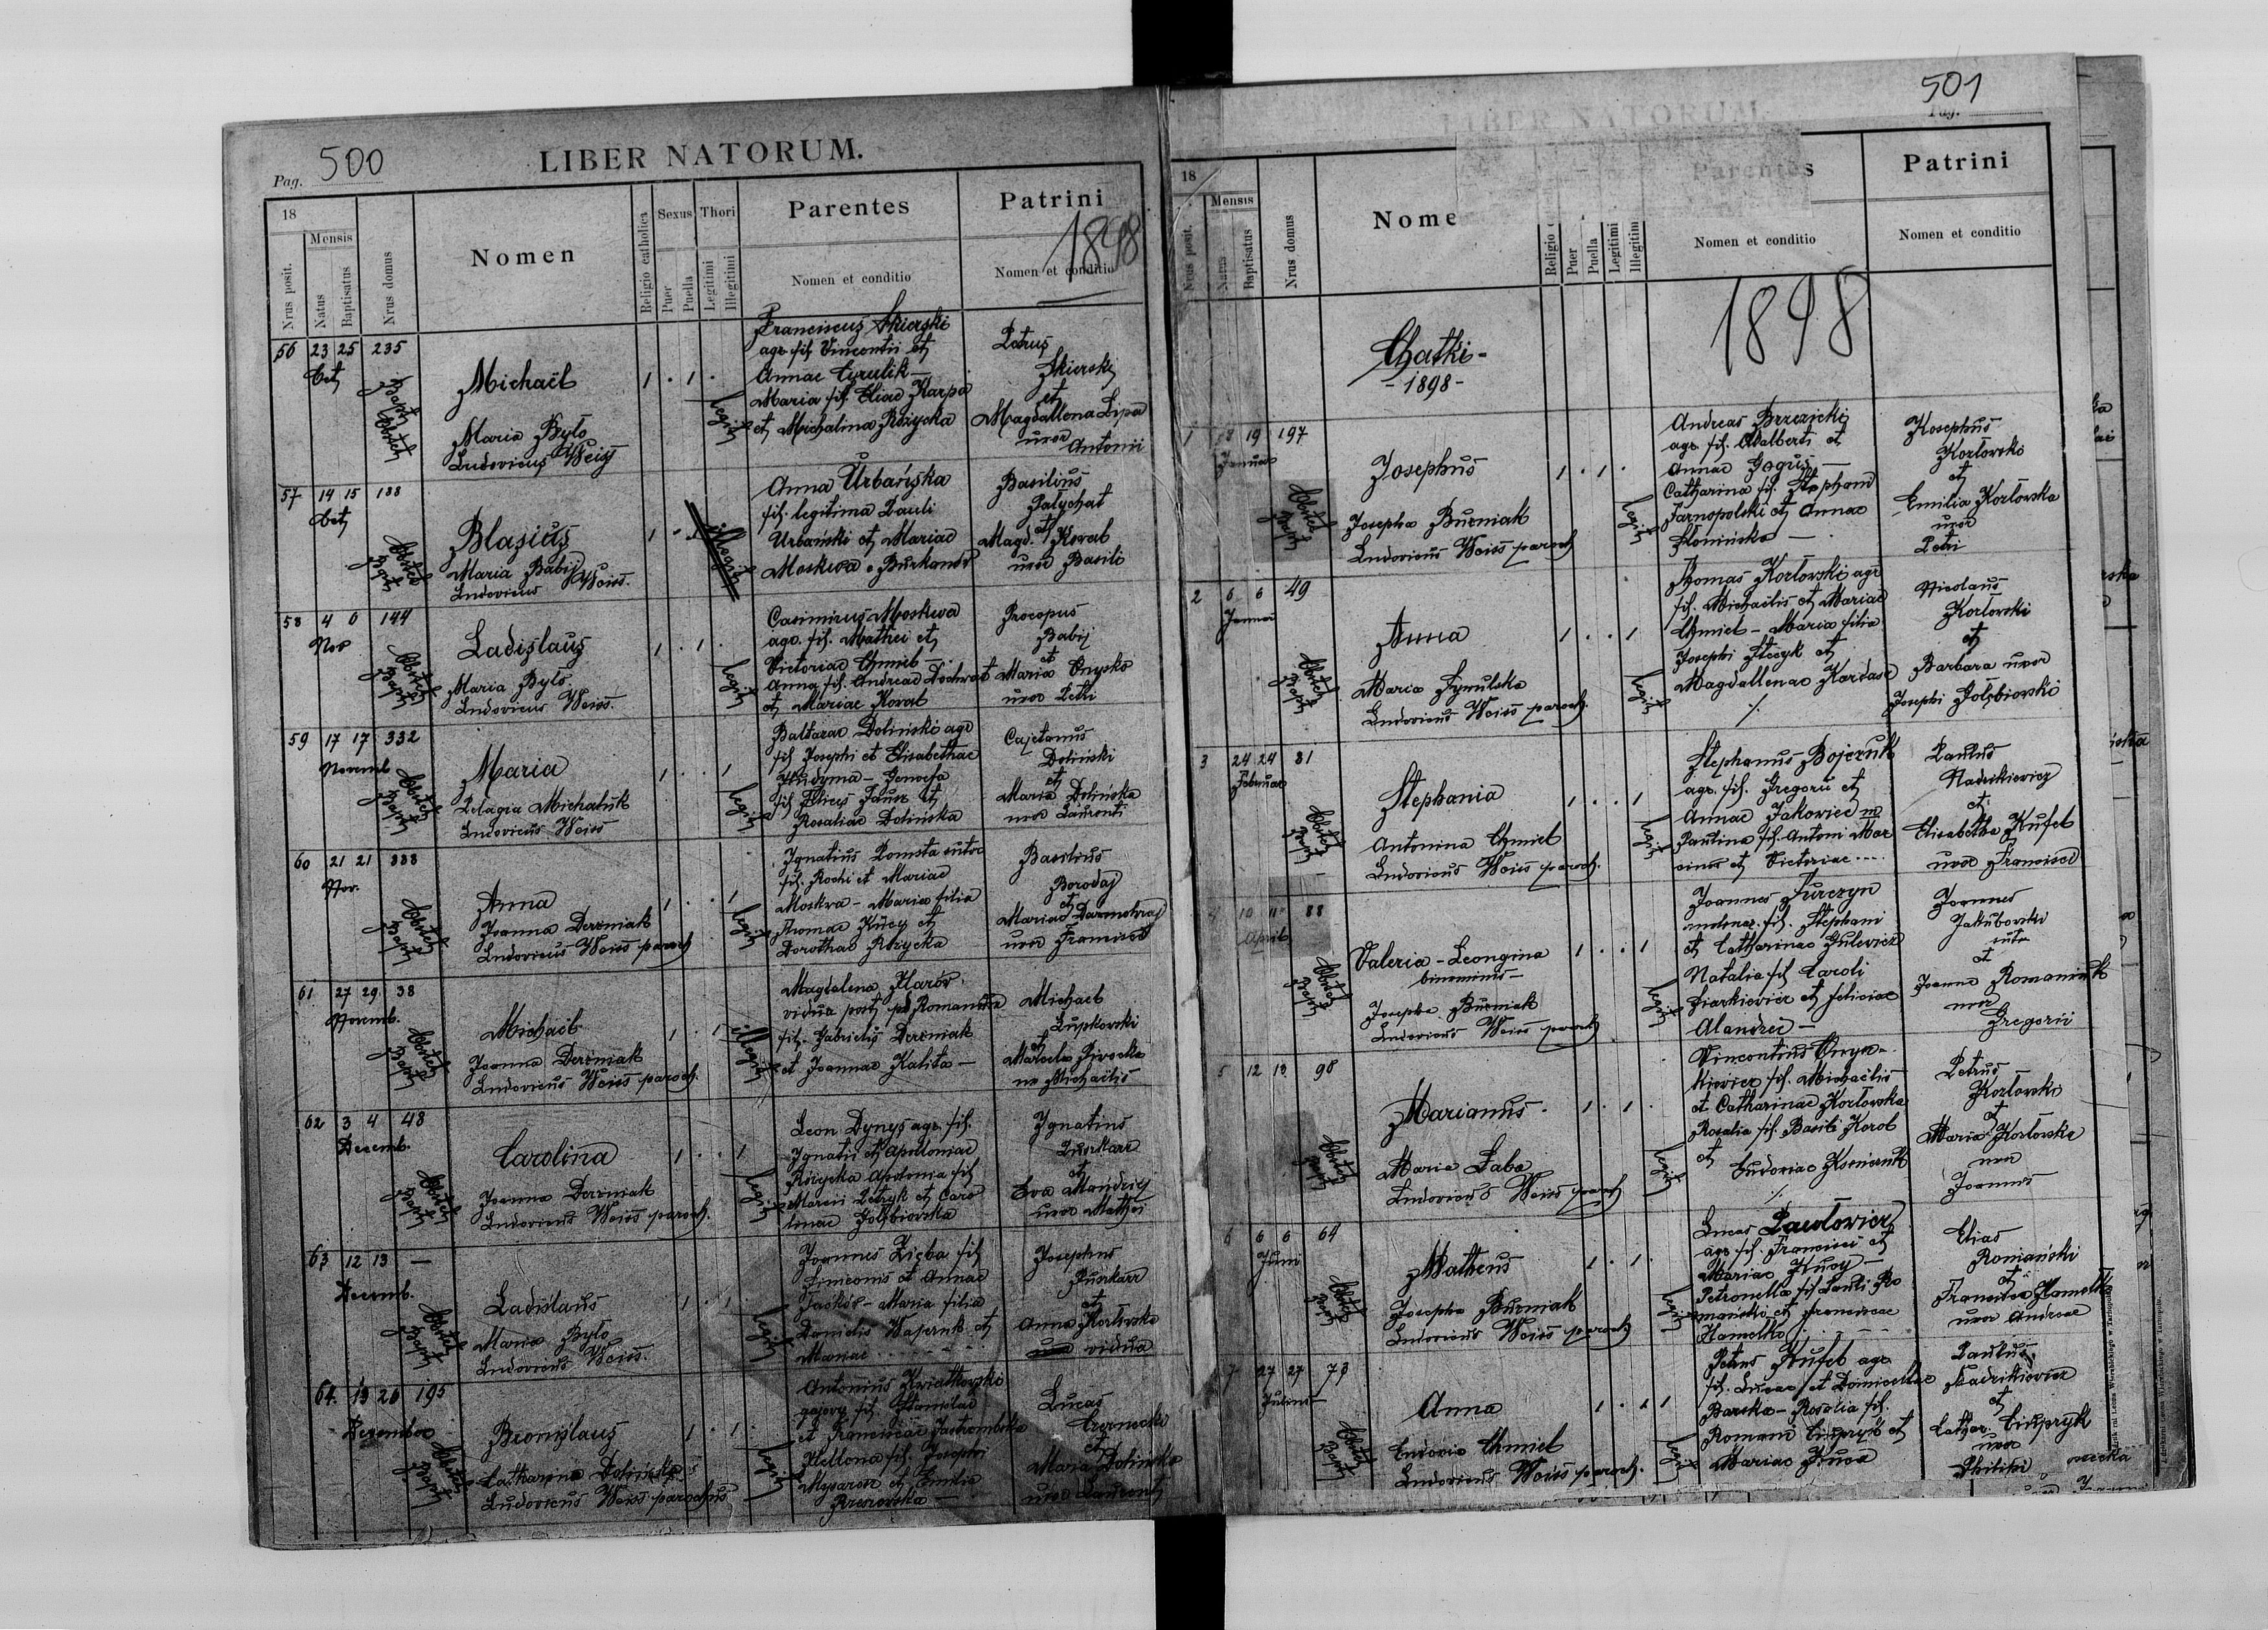 Pag. 500
LIBER NATORUM.
18
Mensis
Nrus posit.
Natus
Baptisatus
Nrus domus
Nomen
Religio catholica
Sexus
Puer
Puella
Thori
Legitimi
Illegitimi
Parentes
Nomen et conditio
Patrini
Nomen et conditio
1898
56 23 25 235
Bapts
Obstet
Michaël
Maria Było
Ludovicus Weiss
1 . 1 .
legit
Franciscus Skierski
agr. fil. Vincentii et
Annae Cyrulik -
Maria fil. Eliae Karpa
et Michalina Różycka
Petrus
Skierski
et
Magdallena Lipa
uxor
Antonii
57 14 15 188
Obstet
Bapts
Blasius
Maria Babij
Ludovicus Weiss.
illegit
Anna Urbańska
fil. legitima Pauli
Urbański et Mariae
Moskwa
Basilius
Palychat
et
Magd. Kowal
uxor Basili
58 4 6 144
Nov
Obstet
Bapts
Ladislaus
Maria Było
Ludovicus Weiss.
1 . 1 .
legit
Casimirus Moskwa
agr. fil. Mathei et
Victoriae Chmiel -
Anna fil. Andreae
et Mariae Kowal
Procopus
Babij
et
Maria Onyśko
uxor Petri
59 17 17 332
Novemb
Obstet
Bapts
Maria
Pelagia Michaluk
Ludovicus Weiss
1 . . 1
legit
Baltazar Doliński agr
fil Josephi et Elisabethae
Hudyma - Genoefa
fil Felicis Jaus et
Rosaliae Dolińska
Cajetanus
Doliński
et
Maria Dolińska
uxor Laurenti
60 21 21 388
Nov.
Obstet
Bapts
Anna
Joanna Derzniak
Ludovicus Weiss paroch
1 . . 1
legit
Ignatius Pomsta sutor
fil. Rochi et Mariae
Moskwa - Maria filia
Thomae Kucy et
Dorothae Różycka
Basilius
Borodaj
et
Mariae Darmohraj
uxor Francisci
61 27 29 38
Novemb.
Obstet
Bapts
Michaël
Joanna Derzniak
Ludovicus Weiss paroch.
1 . 1
illegit
Magdalena
vidua post
fil. Gabrielis Derzniak
et Joannae Kalita -
Michael
Łupkowski
et
Michaelis
62 3 4 48
Decemb.
Obstet
Bapts
Carolina
Joanna Derzniak
Ludovicus Weiss paroch.
1 . . 1
legit
Leon Dynys agr. fil.
Ignatii et Apolloniae
Różycka Apolonia fil
Marci Petryk et Caro
linae Gołębiowska
Ignatius
Puszkarz
et
Eva Mandzij
uxor Mathei
63 12 13 -
Decemb.
Obstet
Bapts
Ladislaus
Maria Było
Ludovicus Weiss.
1 . 1
legit
Joannes Zięba fil
Simeonis et Annae
Jaśków - Maria filia
Danielis et
Mariae
Josephus
Puszkarz
et
Anna Kozłowska
vidua
64 19 26 195
Decembr
Obstet
Bapts
Bronislaus
Catharina Dolińska
Ludovicus Weiss parochus
1 . 1
legit
Antonius Kwiatkowski
gajowy fil. Stanislai
et Franciscae Jastrembska
Hellena fil. Josephi
et Emilia
Rzeszowska
Lucas
Czarnecki
et
Maria Dolińska
uxor Laurenti
501
Pag.
LIBER NATORUM.
18
Mensis
Nrus posit.
Natus
Baptisatus
Nrus domus
Nome
Religio c
Puer
Puella
Legitimi
Illegitimi
Parentes
Nomen et conditio
Patrini
Nomen et conditio
Chatki -
- 1898 -
1898
1 18 19 197
Januar
Obstet
Bapts
Josephus
Josepha Burniak
Ludovicus Weiss paroch
1 . 1 .
legit
Andreas Brzezicki
agr. fil. Adalberti et
Annae Gogus -
Catharina fil. Stephani
Tarnopolski et Annae
Słonińska -
Josephus
Kozłowski
et
Emilia Kozłowska
uxor
Petri
2 6 6 49
Januar
Obstet
Bapts
Anna
Maria Symulska
Ludovicus Weiss paroch.
1 . . 1
legit
Thomas Kozłowski agr
fil. Michaëlis et Mariae
Chmiel - Maria filia
Josephi Stecyk et
Magdallenae Kardasz
Nicolaus
Kozłowski
et
Barbara uxor
Josephi Gołębiowski
3 24 24 81
Februar
Obstet
Bapts
Stephania
Antonina Chmiel
Ludovicus Weiss paroch.
1 . . 1
legit
Stephanus Bojczuk
agr. fil. Gregorii et
Annae Jakowiec
Paulina fil. Antoni Mar
et Victoriae ....
Paulus
Nadzikiewicz
et
Elisabetha Kufel
uxor Francisci
4 10 11 88
April
Obstet
Bapts
Valeria - Leongina
binominis -
Josepha Burniak
Ludovicus Weiss paroch
1 . . 1
legit
Joannes Jurczyn
fil. Stephani
et Catharinae Hulewicz
Natalia fil Caroli
Ziarkiewicz et Feliciae
Alandzei -
Joannes
Jakubowski
sutor
et
Joanna Romaniuk
uxor
Gregorii
5 12 13 98
Obstet
Bapts
Marianus
Maria Baba
Ludovicus Weiss paroch
1 . 1 .
legit
Vincentius
kiewicz fil. Michaëlis
et Catharinae Kozłowska
Rosalia fil. Basili Korol
et
Eudoxiae
Petrus
Kozłowski
et
Maria Kozłowska
uxor
Joannis
6 6 6 64
Juni
Obstet
Bapts
Matheus
Josepha Burniak
Ludovicus Weiss paroch
1 . 1 .
legit
Lucas Pawłowicz
agr. fil. Francisci et
Mariae Kucy -
Petronella fil Pauli Ro
mański et Franciscae
Hamelka
Elias
Romański
et
Francisca Hamelka
uxor Andreae
7 27 27 73
Julius
Obstet
Bapts
Anna
Eudoxia Chmiel
Ludovicus Weiss paroch.
1 . . 1
legit
Petrus Kufel agr.
fil. Lucae et Domicellae
Barska - Rosalia fil.
Romani Ciupryk et
Mariae
Paulus
Nadzikiewicz
et
Cathar. Ciupryk
uxor
Philipi